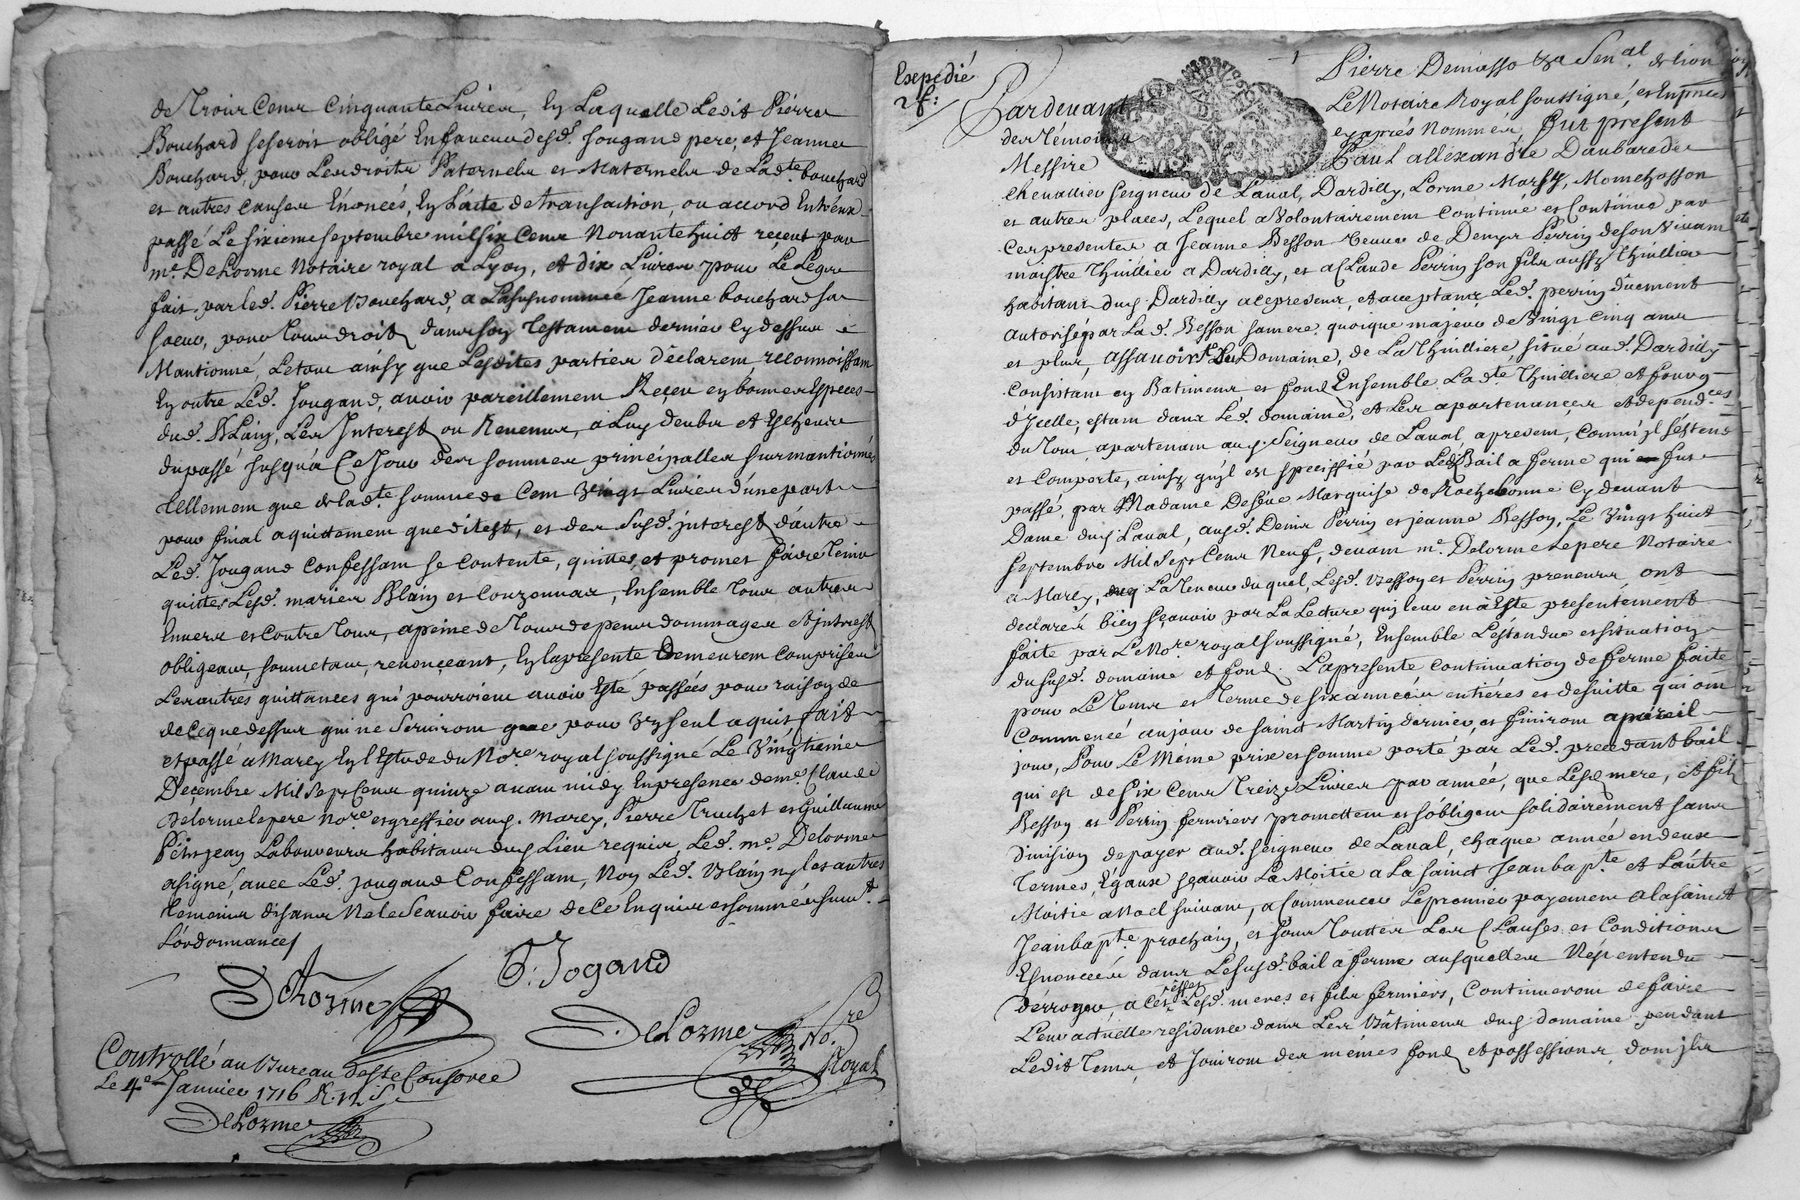 de Trois Cens Cinquante Livres, En Laquelle Ledit Pierre
Bouchard seseroit obligé Enfaveur desd. Jougand pere, et Jeanne
Bouchard, pour Lesdroits Paternels et Maternels de Lad.te bouchard
et autres causes Enoncés, En L'acte detransaction, ou accord Entr'eux
passé Le sixieme septembre mil six Cens Nonante huict receut par
m.e DeLorme Notaire royal a Lyon, et dix Livres pour Le Legat
fait par led. Pierre Bouchard, a La susnommée Jeanne bouchard sa
soeur, pour tous droits dans son Testament dernier Cy dessus
Mantionné, Letout ainsy que Lesdites parties déclarent, reconnoissant
En outre Led. Jougand, avoir pareillement Reçeu en bonnes Especes
dud. Blain, Les Interest ou Revenus, a Luy deubs et Escheus
du passé Jusqu'a Ce Jour des sommes principalles surmantionnés
tellement que de lad.te somme de Cent vingt Livres d'une part
pour final aquittement que dit est, et des susd. interest d'autre
Led. Jougand Confessant se Contente, quitte, et promet faire tenir
quittes Lesd. mariés Blain et Couzonnas, Ensemble tous autres
Envers et Contre tous, a peine de Tous depens dommages et interest
obligeant, soumetant, renonçeant, En la presente Demeurent Comprises
Les autres quittances qui pourroient avoir Esté passées pour raison de
de Ce que dessus qui ne serviront que pour un seul aquit fait
et passé a Marcy En L'Estude du No.re royal soussigné Le vingtieme
Decembre Mil Sept Cens quinze avant midy En presence de m.e Claude
Delorme le pere no.re et greffier aud. Marcy, Pierre Truchet et Guillaume
Petitjean Laboureurs habitans dud. Lieu requis, Led. m.e Delorme
a signé, avec Led. Jougand Confessant, Non Led. Blain ny les autres
temoins disant Ne le Scavoir faire de Ce Enquis et sommés suiv.t
L'ordonnance
DeLorme
P. Jogand
DeLorme No.re
Royal
Controllé au Bureau de Ste Consorce
Le 4.e Janvier 1716 R. 12 S.
DeLorme
Expedié
2 f:
Pierre Demasso Sen.al de Lion
Pardevant Le Notaire Royal soussigné, et En presce
des Témoins cy aprés Nommés, fut present
Messire Paul alléxandre Daubarede
Chevallier seigneur de Laval, Dardilly, Lorme Marcy,
et autres places, Lequel a volontairement Continué et Continue par
Ces presentes a Jeanne Besson veuve de Denys Perrin de son vivant
maistre Thuillier a Dardilly, et a Claude Perrin son fils aussy Thuillier
habitant dud. Dardilly a ce presens, et acceptant, Led. perrin dûement
autorisé par Lad. Besson sa mere, quoique majeur de Vingt Cinq ans
et plus, assavoir Domaine, de La Thuilliere, situé aud. Dardilly
Consistant en Batimens et fond Ensemble Lad.te Thuilliere et fourg
d'Icelle, estant dans Led. domaine, et Les apartenances et depend.ces
du tout apartenant aud. Seigneur de Laval, a present, Comm'jl s'étend
et Comporte, ainsy qu'jl est speciffié par Led. Bail a ferme qui fut
passé, par Madame De seve Marquise de Rochebonne Cy devant
Dame dud. Laval, ausd. Denis Perrin et jeanne Besson, Le vingt huict
septembre Mil Sept Cens Neuf, devant m.e Delorme Le pere Notaire
a Marcy, La Teneur du quel, Lesd. Besson et Perrin preneurs ont
declarés bien sçavoir par La Lecture qui leur en a Esté presentement
faite par Le No.re royal soussigné, Ensemble L'éstendue et situation
du susd. domaine et fond. La presente continuation de ferme faite
pour Le Tems et Terme de six années entiéres et de suitte qui ont
Commencé au jour de saint Martin dernier, et finiront a pareil
jour, Pour Le Même prix et somme porté par Led. precedant bail
qui est de six Cens Treize Livres par année, que Lesd. mere, et fils
Besson et Perrin fermiers promettent et s'obligent solidairement sans
division de payer aud. seigneur de Laval, chaque année en deux
Termes, Egaux sçavoir La Moitié a La saint Jean bap.te et L'autre
Moitié a Noel suivant, a Commencer Le premier payement a la saint
Jean bap.te prochain, et sous Touttes Les Clauses et Conditions
Enoncées dans Le susd. bail a ferme ausquelles N'ést entendu
derroger, a Cet effet Lesd. meres et fils fermiers, Continueront de faire
Leur actuelle residance dans Les Bâtimens dud. domaine pendant
Ledit Tems, et Jouiront des mémes fond et possessions, dont jls